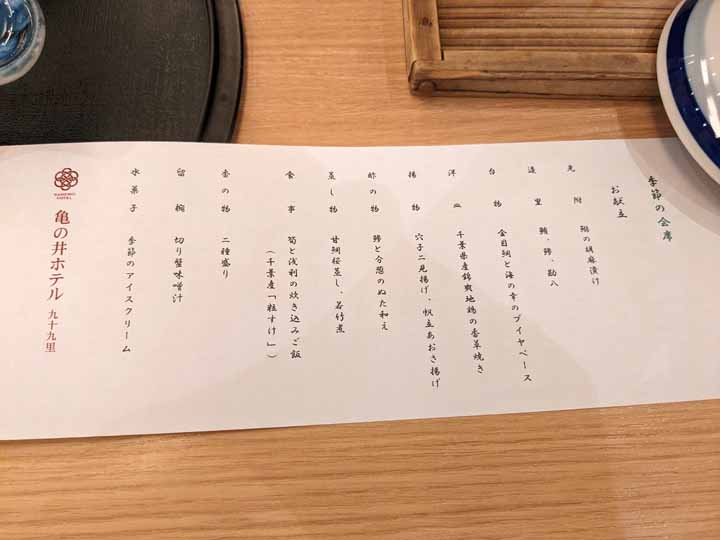 季節の会席
お献立
先附 鰯の胡麻漬け
造里 鮪、鰺、勘八
台物 金目鯛と海の幸のブイヤベース
洋皿 千葉県産錦爽地鶏の香草焼き
揚物 穴子二見揚げ、帆立あおさ揚げ
酢の物 鰺と分葱のぬた和え
蒸し物 甘鯛桜蒸し、若竹煮
食事 筍と浅利の炊き込みご飯
（千葉産「粒すけ」）
香の物 二種盛り
留椀 切り蟹味噌汁
水菓子 季節のアイスクリーム
KAMENOI
HOTEL
亀の井ホテル 九十九里